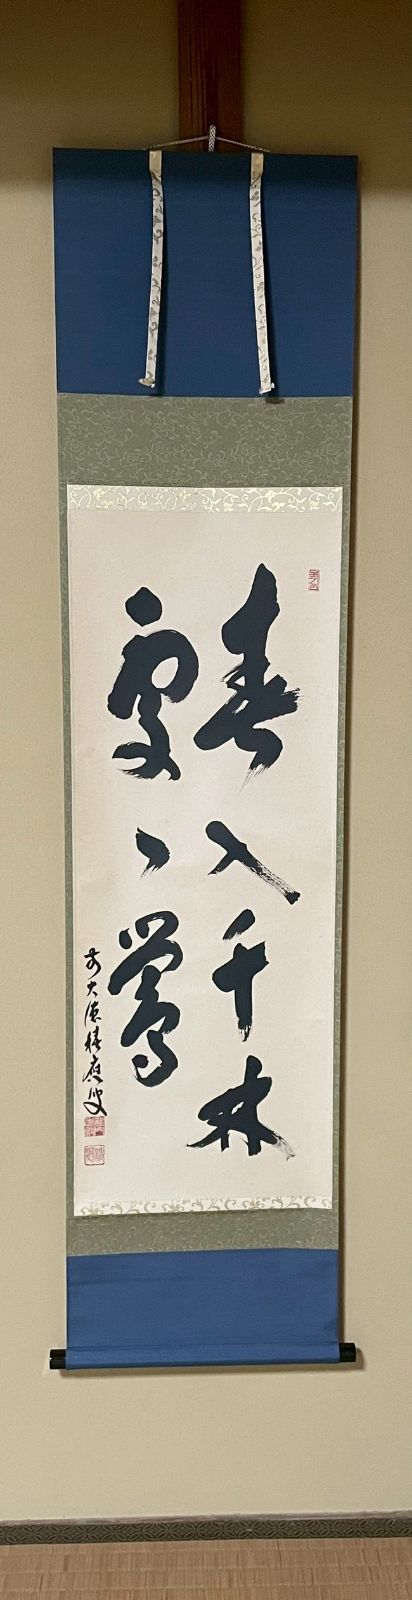 春入千林
處々鶯
前大徳積應叟